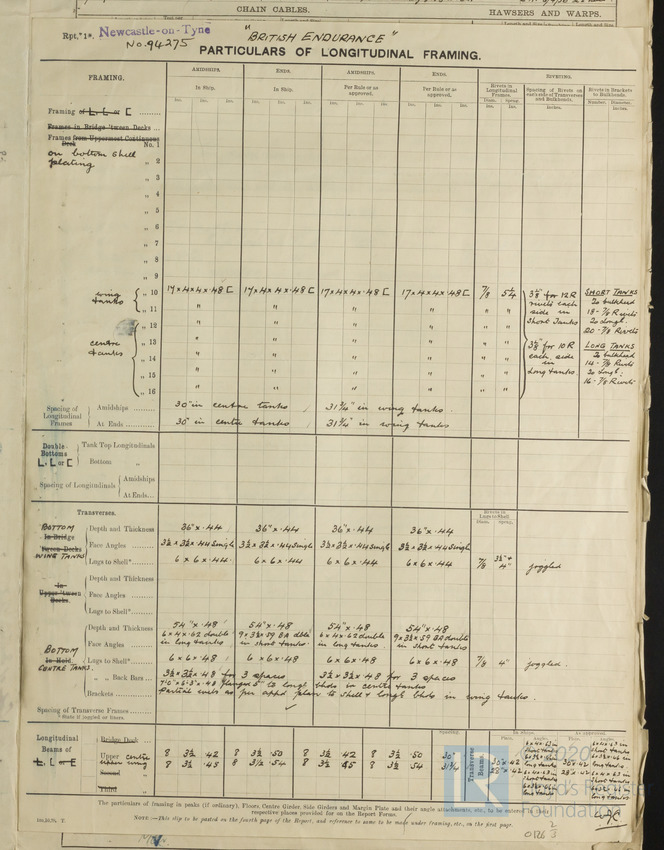 CHAIN CABLES.
HAWSERS AND WARPS.
Rpt. 1*.
Newcastle-on-Tyne
No. 94275
"BRITISH ENDURANCE"
PARTICULARS OF LONGITUDINAL FRAMING.
FRAMING.
AMIDSHIPS. ENDS. AMIDSHIPS. ENDS.
In Ship. In Ship. Per Rule or as approved. Per Rule or as approved.
Rivets in Longitudinal Frames. Diam. Spcng.
RIVETING.
Spacing of Rivets on each side of Transverses and Bulkheads.
Rivets in Brackets to Bulkheads. Number. Diameter.
Framing or L, L, or [ ........
Frames in Bridge 'tween Decks ...
Frames from Uppermost Continuous Deck No. 1
on bottom shell plating
" 2
" 3
" 4
" 5
" 6
" 7
" 8
" 9
wing tanks
" 10 17 x 4 x 4 x .48 [ 17 x 4 x 4 x .48 [ 17 x 4 x 4 x .48 [ 17 x 4 x 4 x .48 [ 7/8 5 1/4
" 11 " " " " " "
" 12 " " " " " "
centre tanks
" 13 " " " " " "
" 14 " " " " " "
" 15 " " " " " "
" 16 " " " " " "
3 1/2" for 12 R
rivets each
side in
Short Tanks
3 1/2" for 10 R
each side
in
Long tanks
SHORT TANKS
To bulkhead
18 - 7/8 Rivets
To Longl.
20 - 7/8 Rivets
LONG TANKS
To bulkhead
14 - 7/8 Rivets
To Longl.
16 - 7/8 Rivets
Spacing of Longitudinal Frames
Amidships ........ 30" in centre tanks 31 3/4" in wing tanks.
At Ends ........ 30" in centre tanks 31 3/4" in wing tanks
Double Bottoms L, L or [
Tank Top Longitudinals
Bottom "
Spacing of Longitudinals
Amidships
At Ends...
Transverses.
Rivets in Lugs to Shell. Diam. Spcng.
BOTTOM In Bridge 'tween Decks WING TANKS
Depth and Thickness 36" x .44 36" x .44 36" x .44 36" x .44
Face Angles 3 1/2 x 3 1/2 x .44 single 3 1/2 x 3 1/2 x .44 single 3 1/2 x 3 1/2 x .44 single 3 1/2 x 3 1/2 x .44 single
Lugs to Shell* 6 x 6 x .44 6 x 6 x .44 6 x 6 x .44 6 x 6 x .44 7/8 4" joggled
In Upper 'tween Decks.
Depth and Thickness
Face Angles
Lugs to Shell*
BOTTOM In Hold. CENTRE TANKS.
Depth and Thickness 54" x .48 54" x .48 54" x .48 54" x .48
Face Angles 6 x 4 x .62 double in long tanks 9 x 3 1/2 x .59 BA dble in short tanks 6 x 4 x .62 double in long tanks 9 x 3 1/2 x .59 BA double in short tanks
Lugs to Shell* 6 x 6 x .48 6 x 6 x .48 6 x 6 x .48 6 x 6 x .48 7/8 4" joggled.
" " Back Bars ... 3 1/2 x 3 1/2 x .48 for 3 spaces 3 1/2 x 3 1/2 x .48 for 3 spaces
Brackets
flanged 5" to longl bhds in centre tanks
Partial webs as per appd plan to shell & longl bhds in wing tanks.
Spacing of Transverse Frames ........
* State if joggled or liners.
Longitudinal Beams of L, L or [
Bridge Deck ...
Upper centre 8 3 1/2 .42 8 3 1/2 .50 8 3 1/2 .42 8 3 1/2 .50 30"
wing 8 3 1/2 .45 8 3 1/2 .54 8 3 1/2 .45 8 3 1/2 .54 31 3/4
Second "
Third "
Spacing.
Transverse Beams.
In Ship. As approved.
Plate. Angles.
The particulars of framing in peaks (if ordinary), Floors, Centre Girder, Side Girders and Margin Plate and their angle attachments, etc., to be entered in their
respective places provided for on the Report Forms.
NOTE:—This slip to be pasted on the fourth page of the Report, and reference to same to be made under framing, etc., on the first page.
© 2020
Lloyd's Register
Foundation